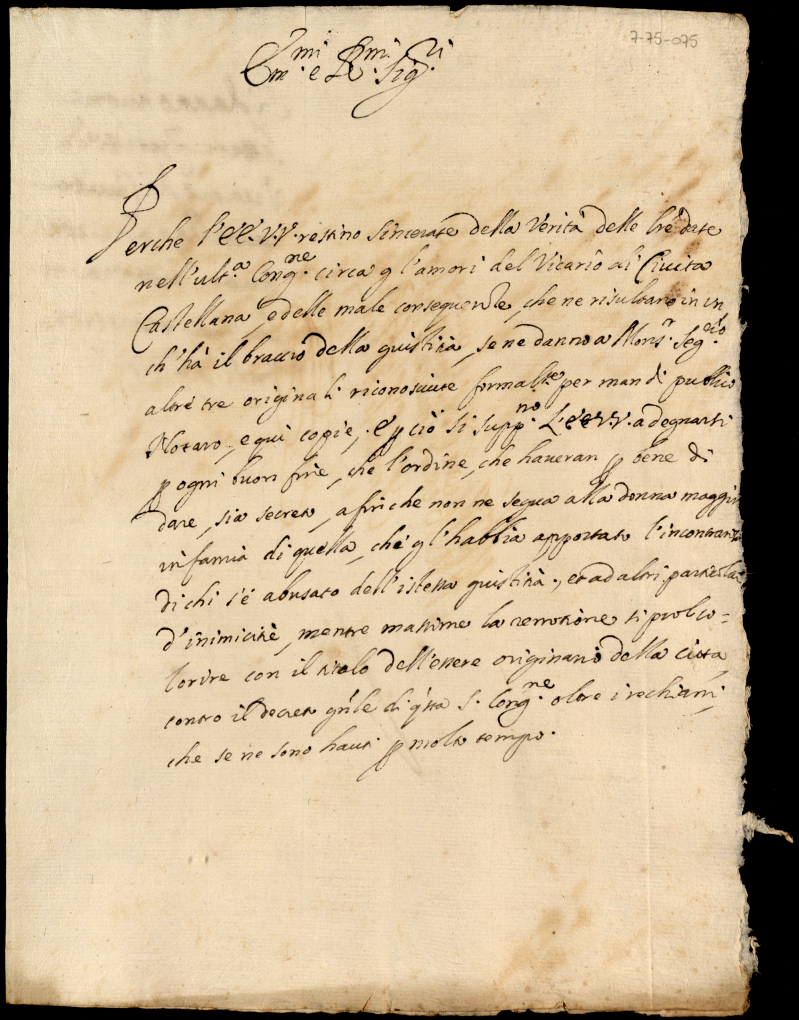 7-75-075
Em.mi e R.mi Sig.ri
Perche l'EE.VV. restino sincerate della verità delle lrẽ date
nell'ult.a Cong.ne circa gl'amori del Vicario di Civita
Castellana, e delle male conseguenze, che ne risultano in un
ch'hà il braccio della giustitia, se ne danno a Mons.r Seg.rio
altre tre originali riconosciute formalṫe per man di publico
Notaro, e qui copie, e p ciò si supp.no L'EE.VV. a degnarsi
p ogni buon fine, che l'ordine, che haveran p bene di
dare, sia secreto, a fin che non ne segua alla donna maggior
infamia di quella, che gl'habbia apportato l'incontran
di chi s'è abusato dell'istessa giustitia, et ad altri particolari
d'inimicitie, mentre massime la remotione si può co=
lorire con il titolo dell'essere originario della città,
contro il decreto gñle di q̃sta S. Cong.ne oltre i rechiami,
che se ne sono havuti p molto tempo.